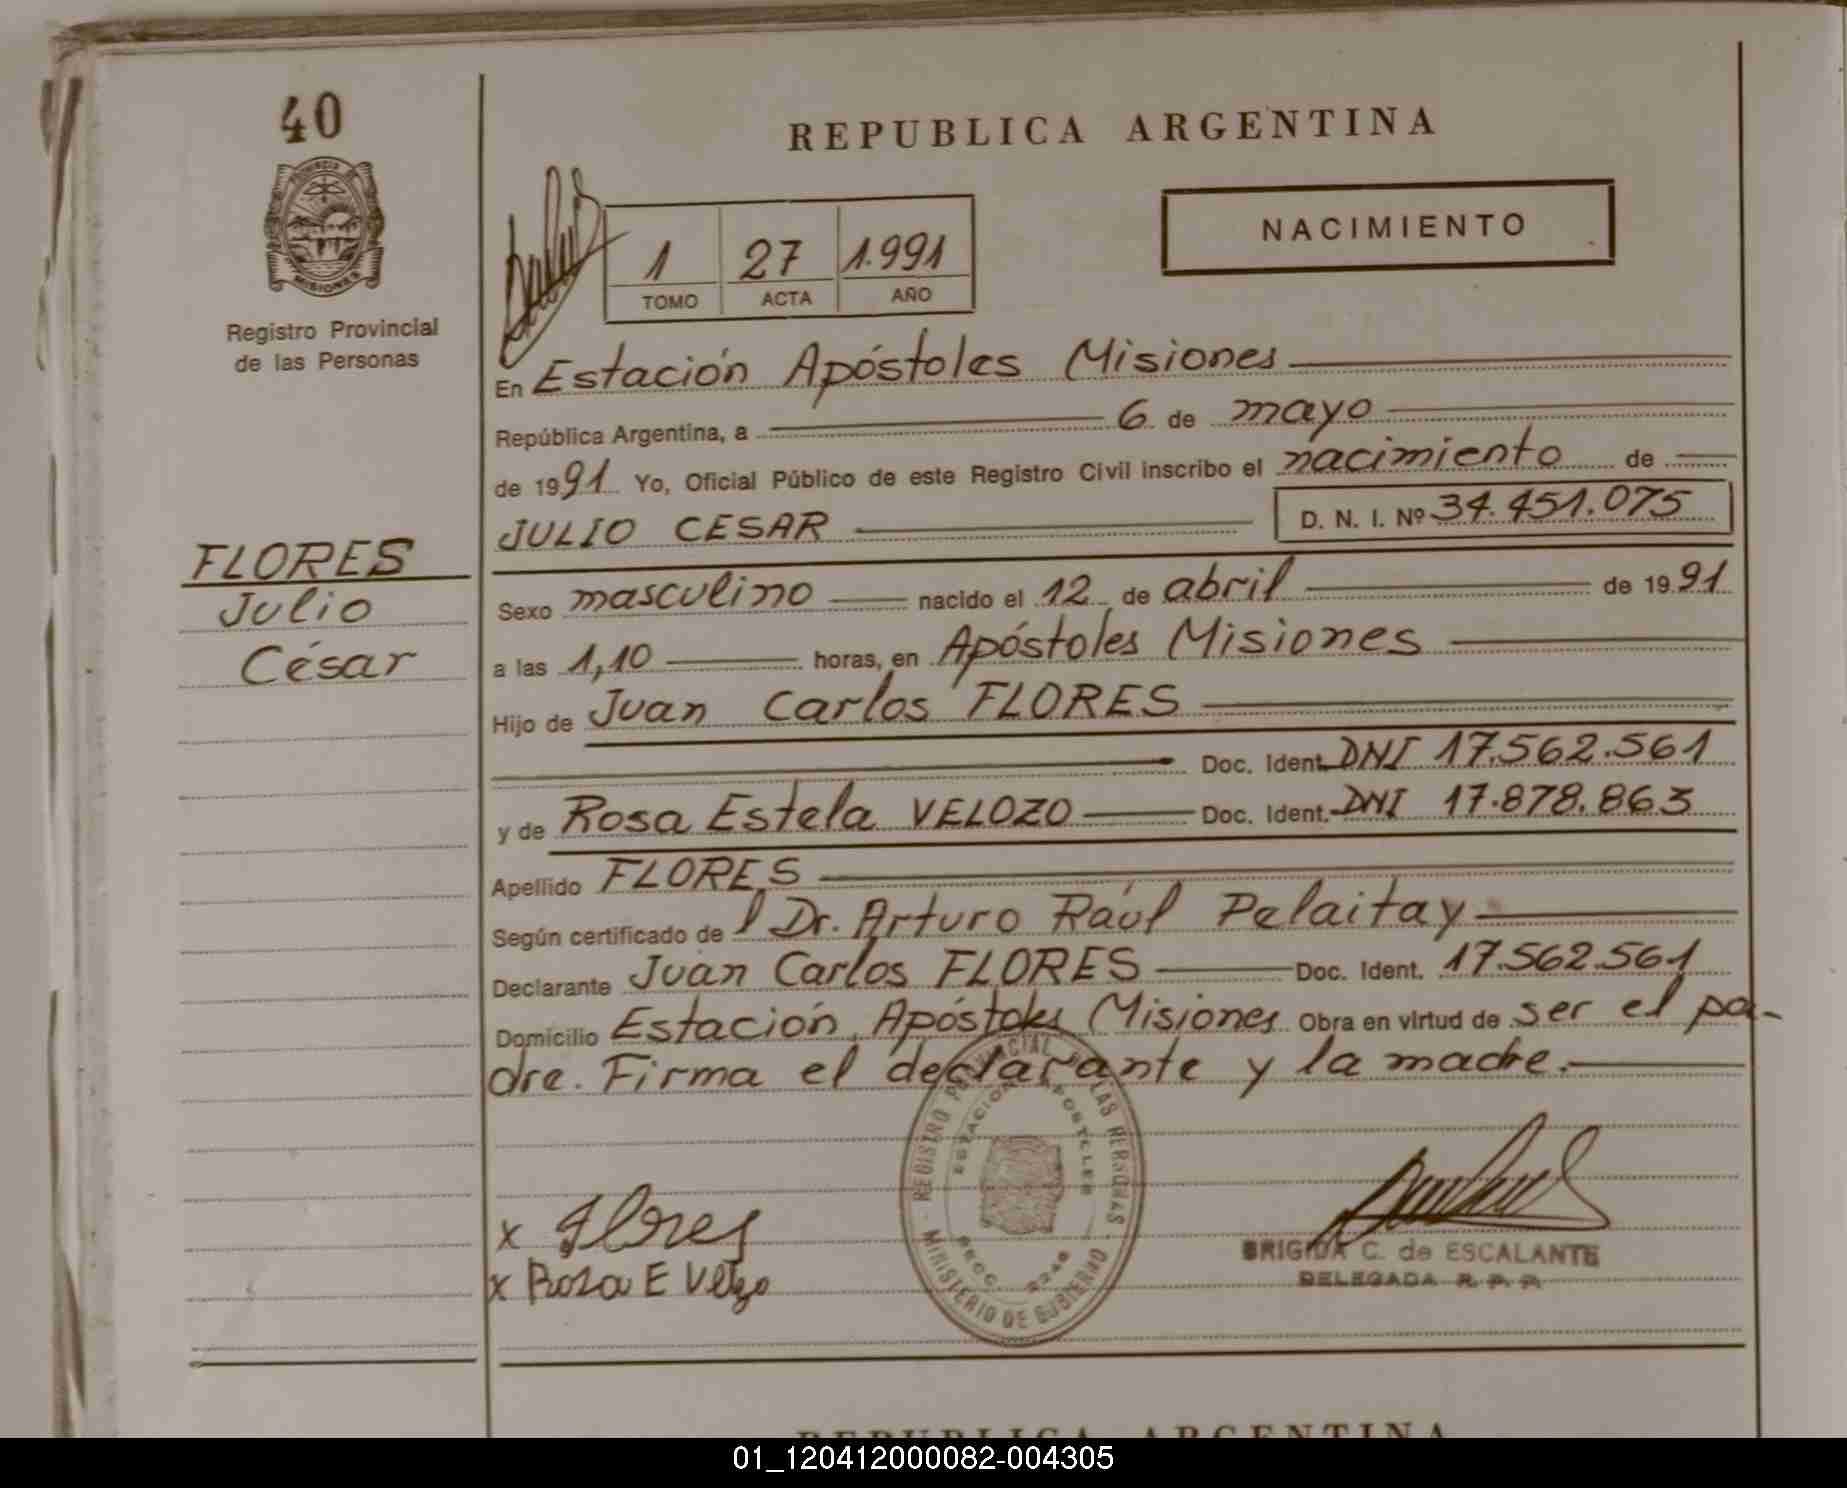 40
PROVINCIA DE
MISIONES
Registro Provincial
de las Personas
FLORES
Julio
César
REPUBLICA ARGENTINA
NACIMIENTO
1 27 1.991
TOMO ACTA AÑO
En Estación Apóstoles Misiones
República Argentina, a 6 de mayo
de 1991 Yo, Oficial Público de este Registro Civil inscribo el nacimiento de
JULIO CESAR D. N. I. Nº 34.451.075
Sexo masculino nacido el 12 de abril de 1991
a las 1,10 horas, en Apóstoles Misiones
Hijo de Juan Carlos FLORES
Doc. Ident. DNI 17.562.561
y de Rosa Estela VELOZO Doc. Ident. DNI 17.878.863
Apellido FLORES
Según certificado de l Dr. Arturo Raúl Pelaitay
Declarante Juan Carlos FLORES Doc. Ident. 17.562.561
Domicilio Estación Apóstoles Misiones Obra en virtud de ser el pa-
dre. Firma el declarante y la madre.
REGISTRO PROVINCIAL DE LAS PERSONAS
ESTACION APOSTOLES
MINISTERIO DE GOBIERNO
x Flores
x Rosa E Velozo
BRIGIDA C. de ESCALANTE
DELEGADA R. P. P.
REPUBLICA ARGENTINA
01_120412000082-004305